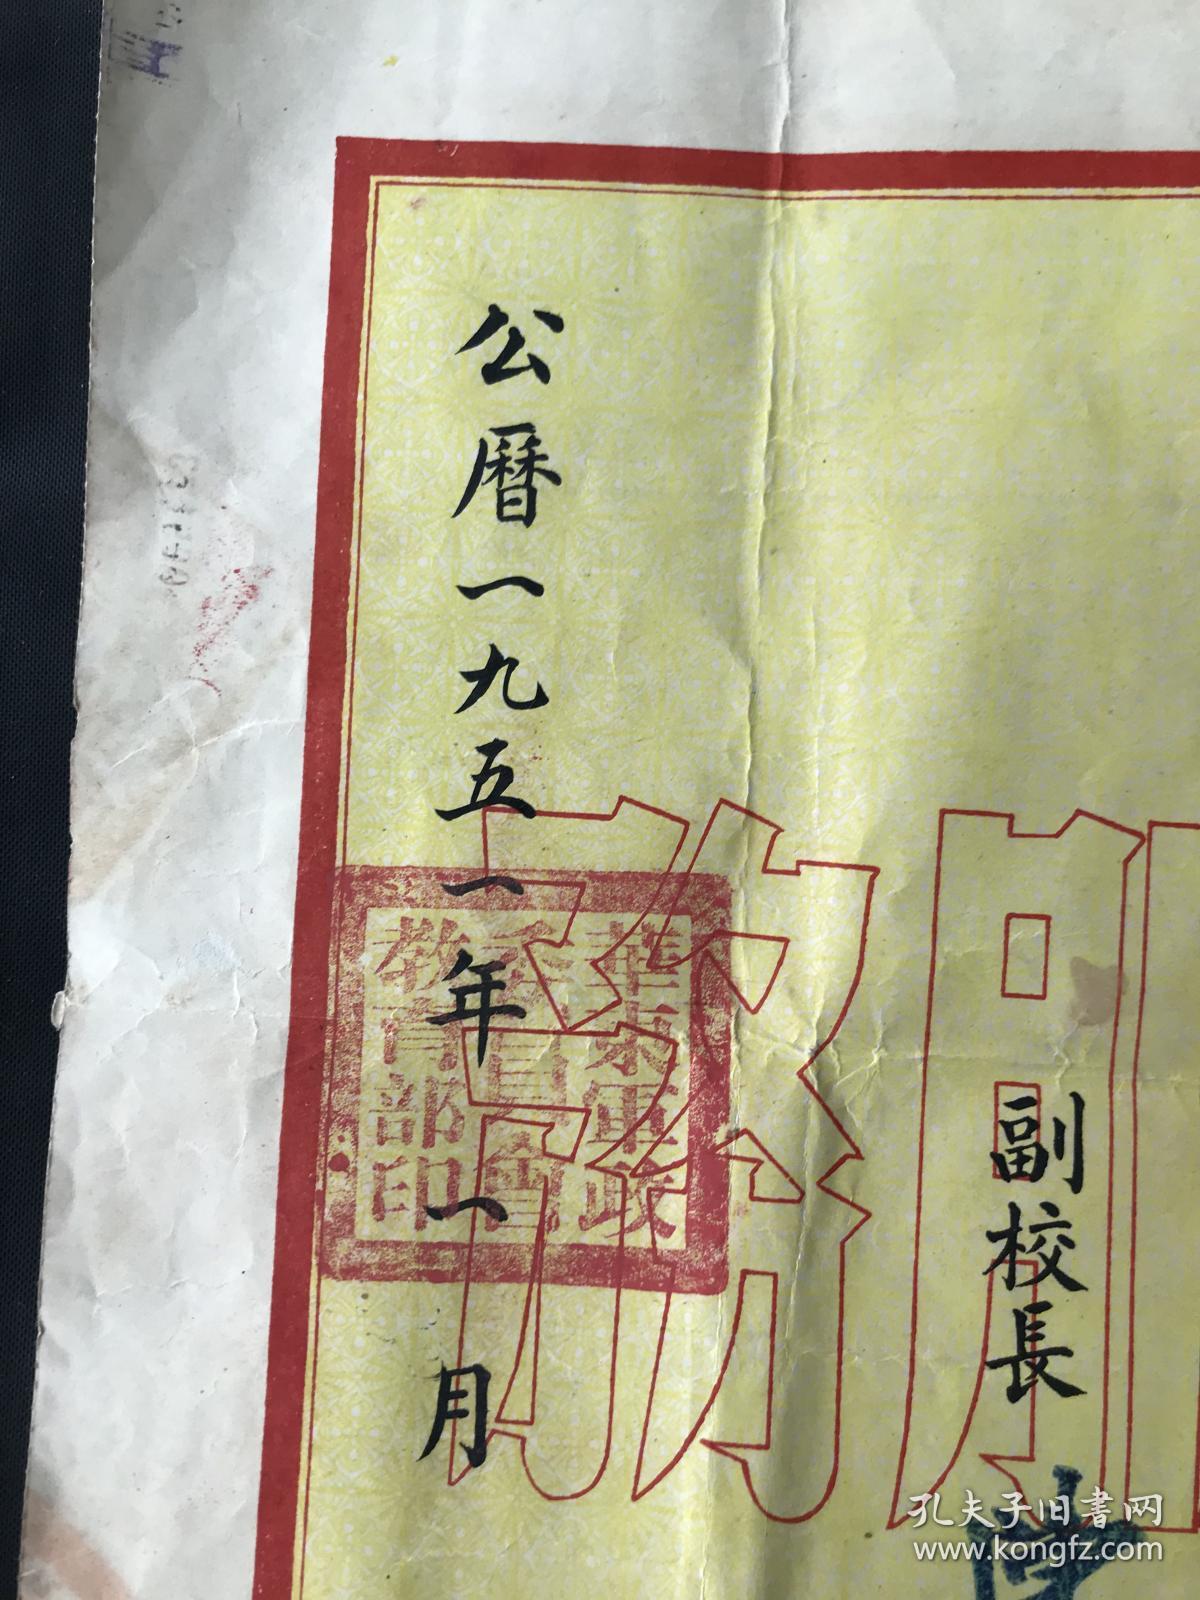 副校長
公曆一九五一年一月
華東軍政
委員會
教育部印
服務
孔夫子旧書网
www.kongfz.com